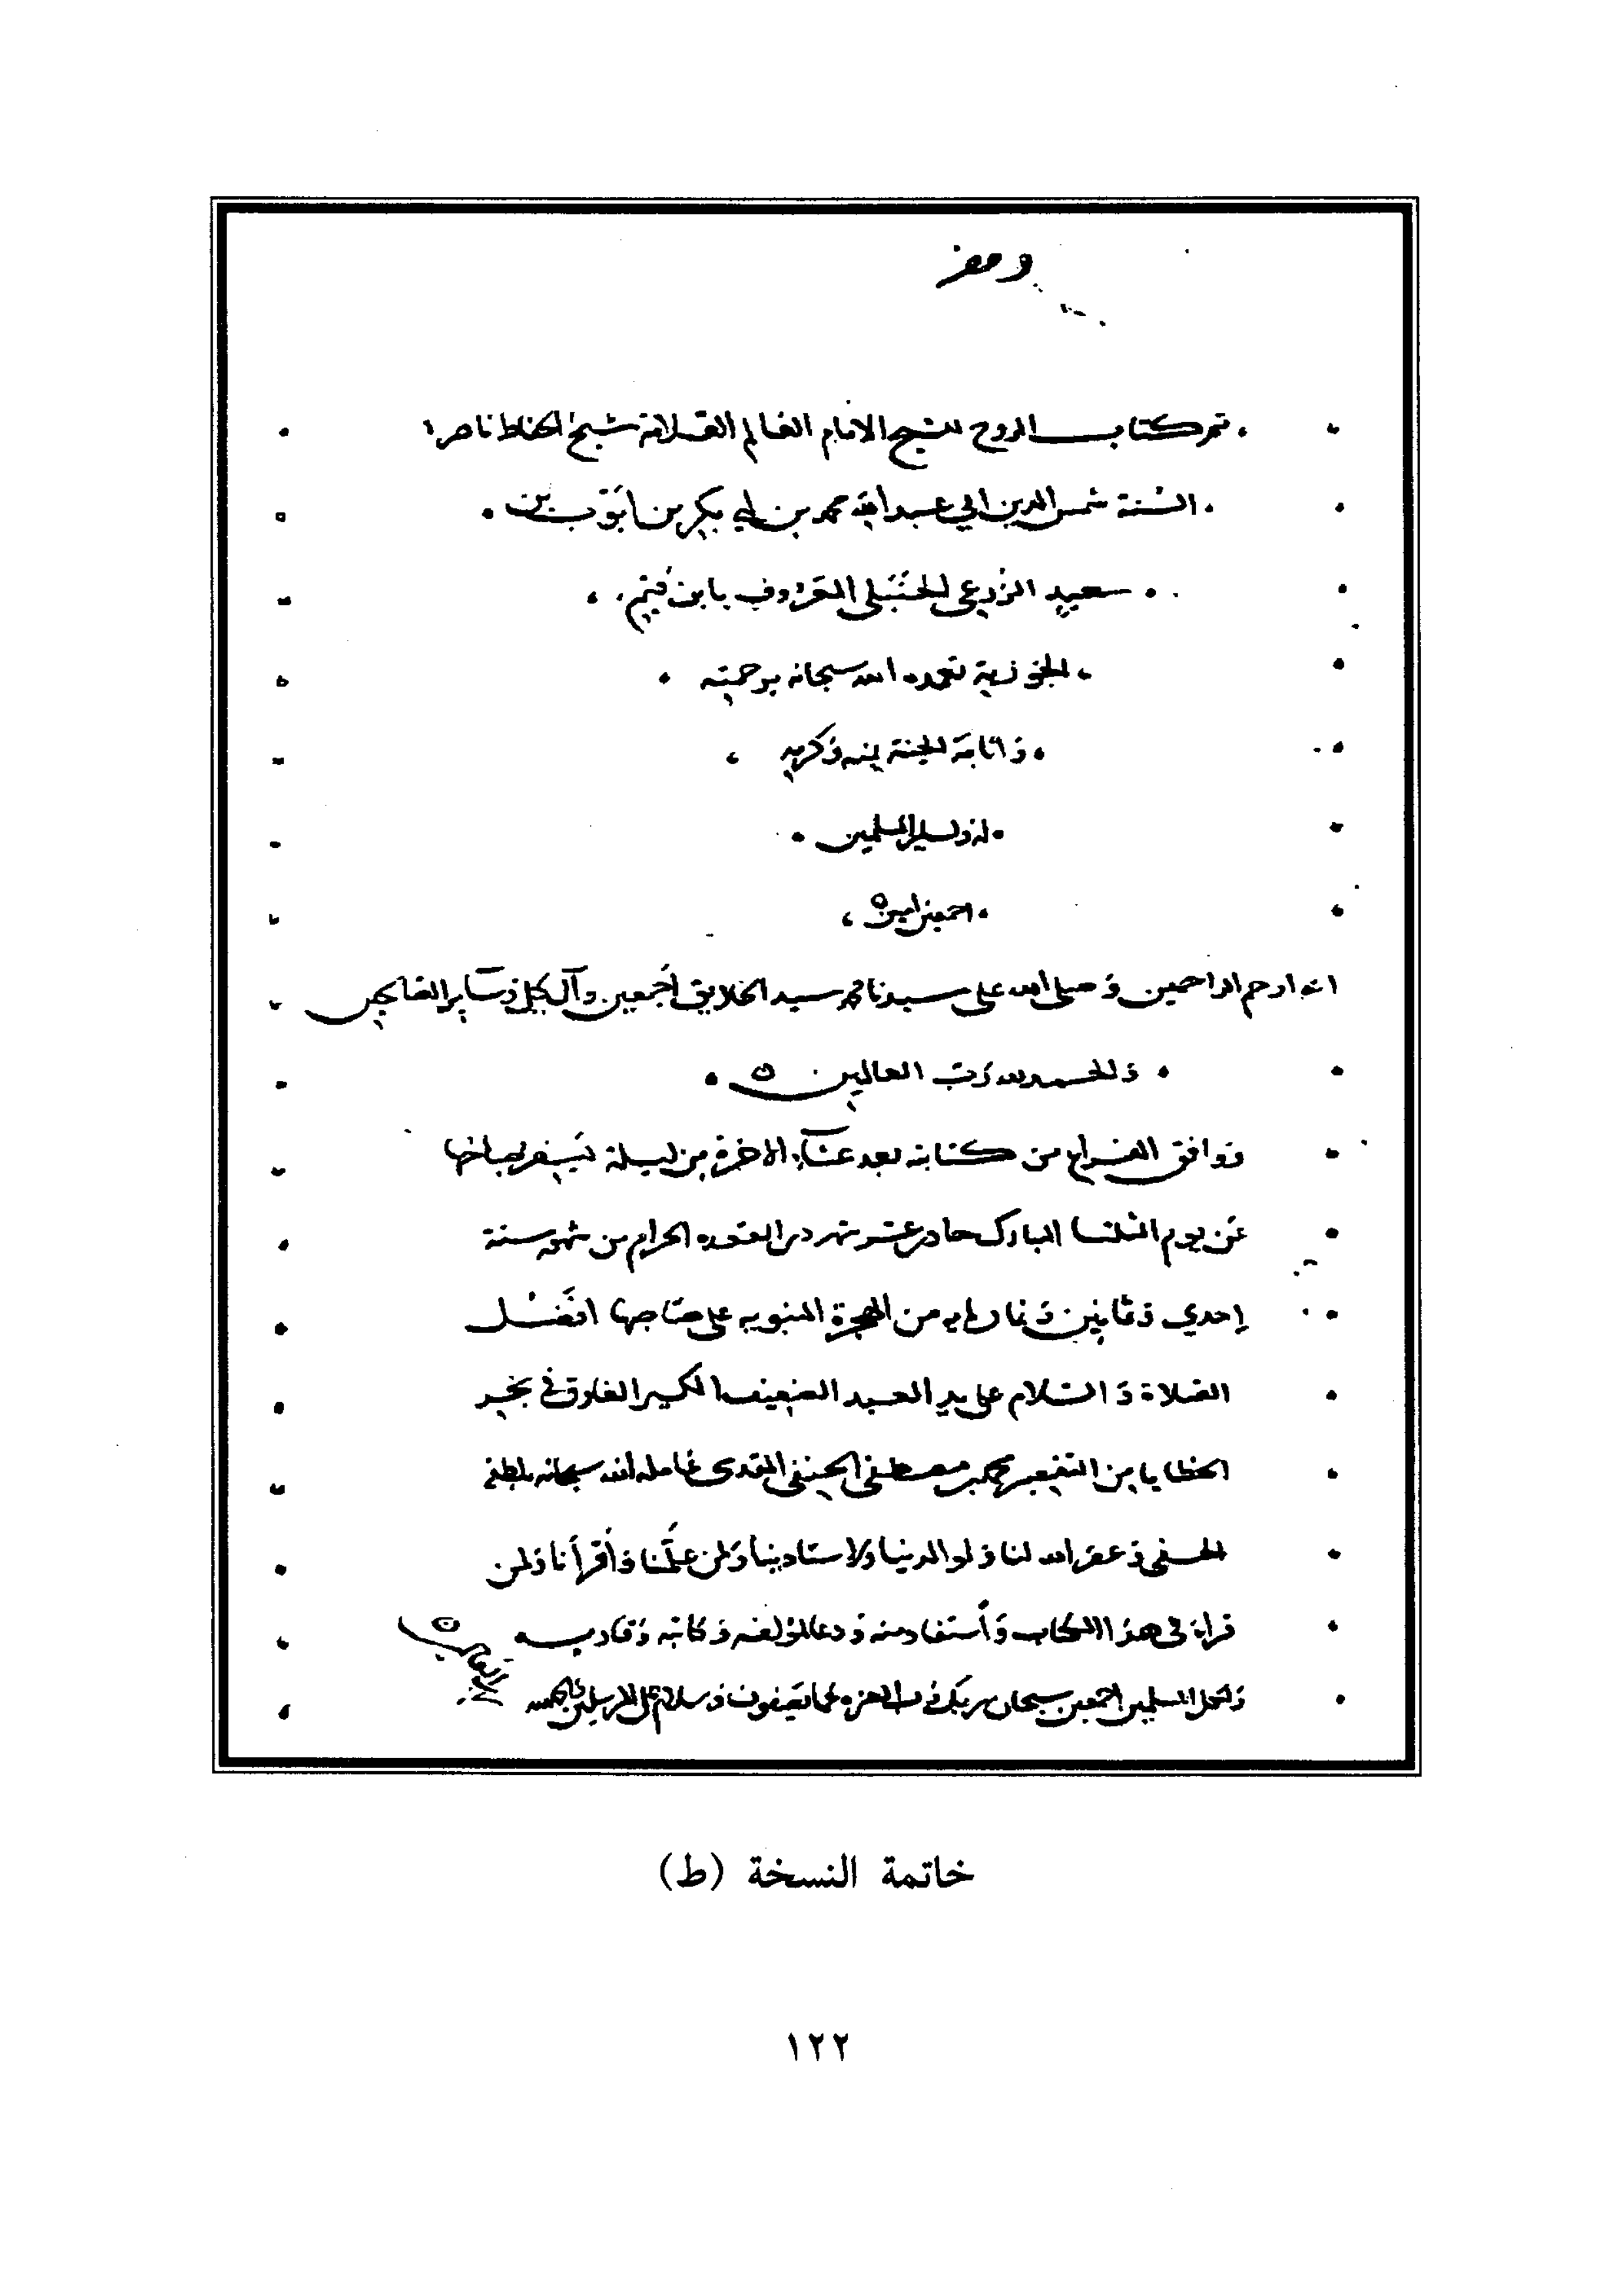 تم كتاب الروح للشيخ الامام العالم العلامة شيخ الحفاظ ناصر
السنة شمس الدين ابي عبد الله محمد بن ابي بكر بن ايوب بن
سعيد الزرعي الحنبلي المعروف بابن قيم
الجوزية تغمده الله سبحانه برحمته
واثابه الجنة بمنه وكرمه
لنا ولسائر المسلمين
اجمعين امين
انه ارحم الراحمين وصلى الله على سيدنا محمد سيد الخلايق اجمعين وآل كل وساير الصالحين
والحمد لله رب العالمين
ووافق الفراغ من كتابته بعد عشآء الاخرة من ليلة يسفر صباحها
عن يوم الثلثا المبارك حادي عشر شهر ذي القعده الحرام من شهور سنة
إحدي وثمانين وثمان مايه من الهجرة النبويه على صاحبها افضل
الصلاة والسلام على يد العبد الضعيف الكسير الغارق في بحر
الخطايا من التقصير محمد بن مصطفى الحنفي المقدسي عامله الله سبحانه بلطفه
الخفي وغفر الله لنا ولوالدينا ولاستاذينا ولمن علمنا وأقرأنا ولمن
قراء في هذا الكتاب وأستفاد منه ودعا لمؤلفه وكاتبه وقاريه
ولكل المسلمين اجمعين سبحان ربك رب العزه عما يصفون وسلام على المرسلين والحمد لله
رب العالمين
خاتمة النسخة (ط)
١٢٢